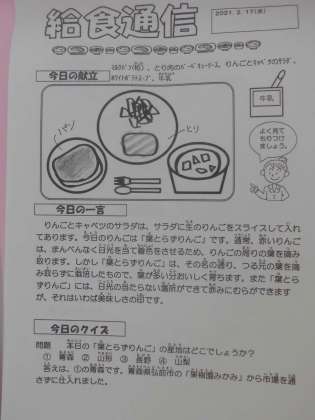 給食通信
2021. 2. 17(水)
今日の献立
牛乳
パン
とり
よく見て
もりつけ
ましょう。
今日の一言
りんごとキャベツのサラダは、サラダに生のりんごをスライスして入れ
てあります。今日のりんごは「葉とらずりんご」です。通常、赤いりんご
は、まんべんなく日光を当て着色をさせるため、りんごの周りの葉を摘み
取ります。しかし「葉とらずりんご」は、その名の通り、つる元の葉を摘
み取らずに栽培したもので、葉が多い分おいしく育ちます。また「葉とら
ずりんご」には、日光の当たらない箇所ができて赤みにむらができます
が、それはいわば美味しさの印です。
今日のクイズ
問題 本日の「葉とらずりんご」の産地はどこでしょうか?
① 青森 ② 山形 ③ 長野 ④ 山梨
答えは、①の青森です。青森県弘前市の「果樹園みかみ」から市場を通
さずに仕入れました。